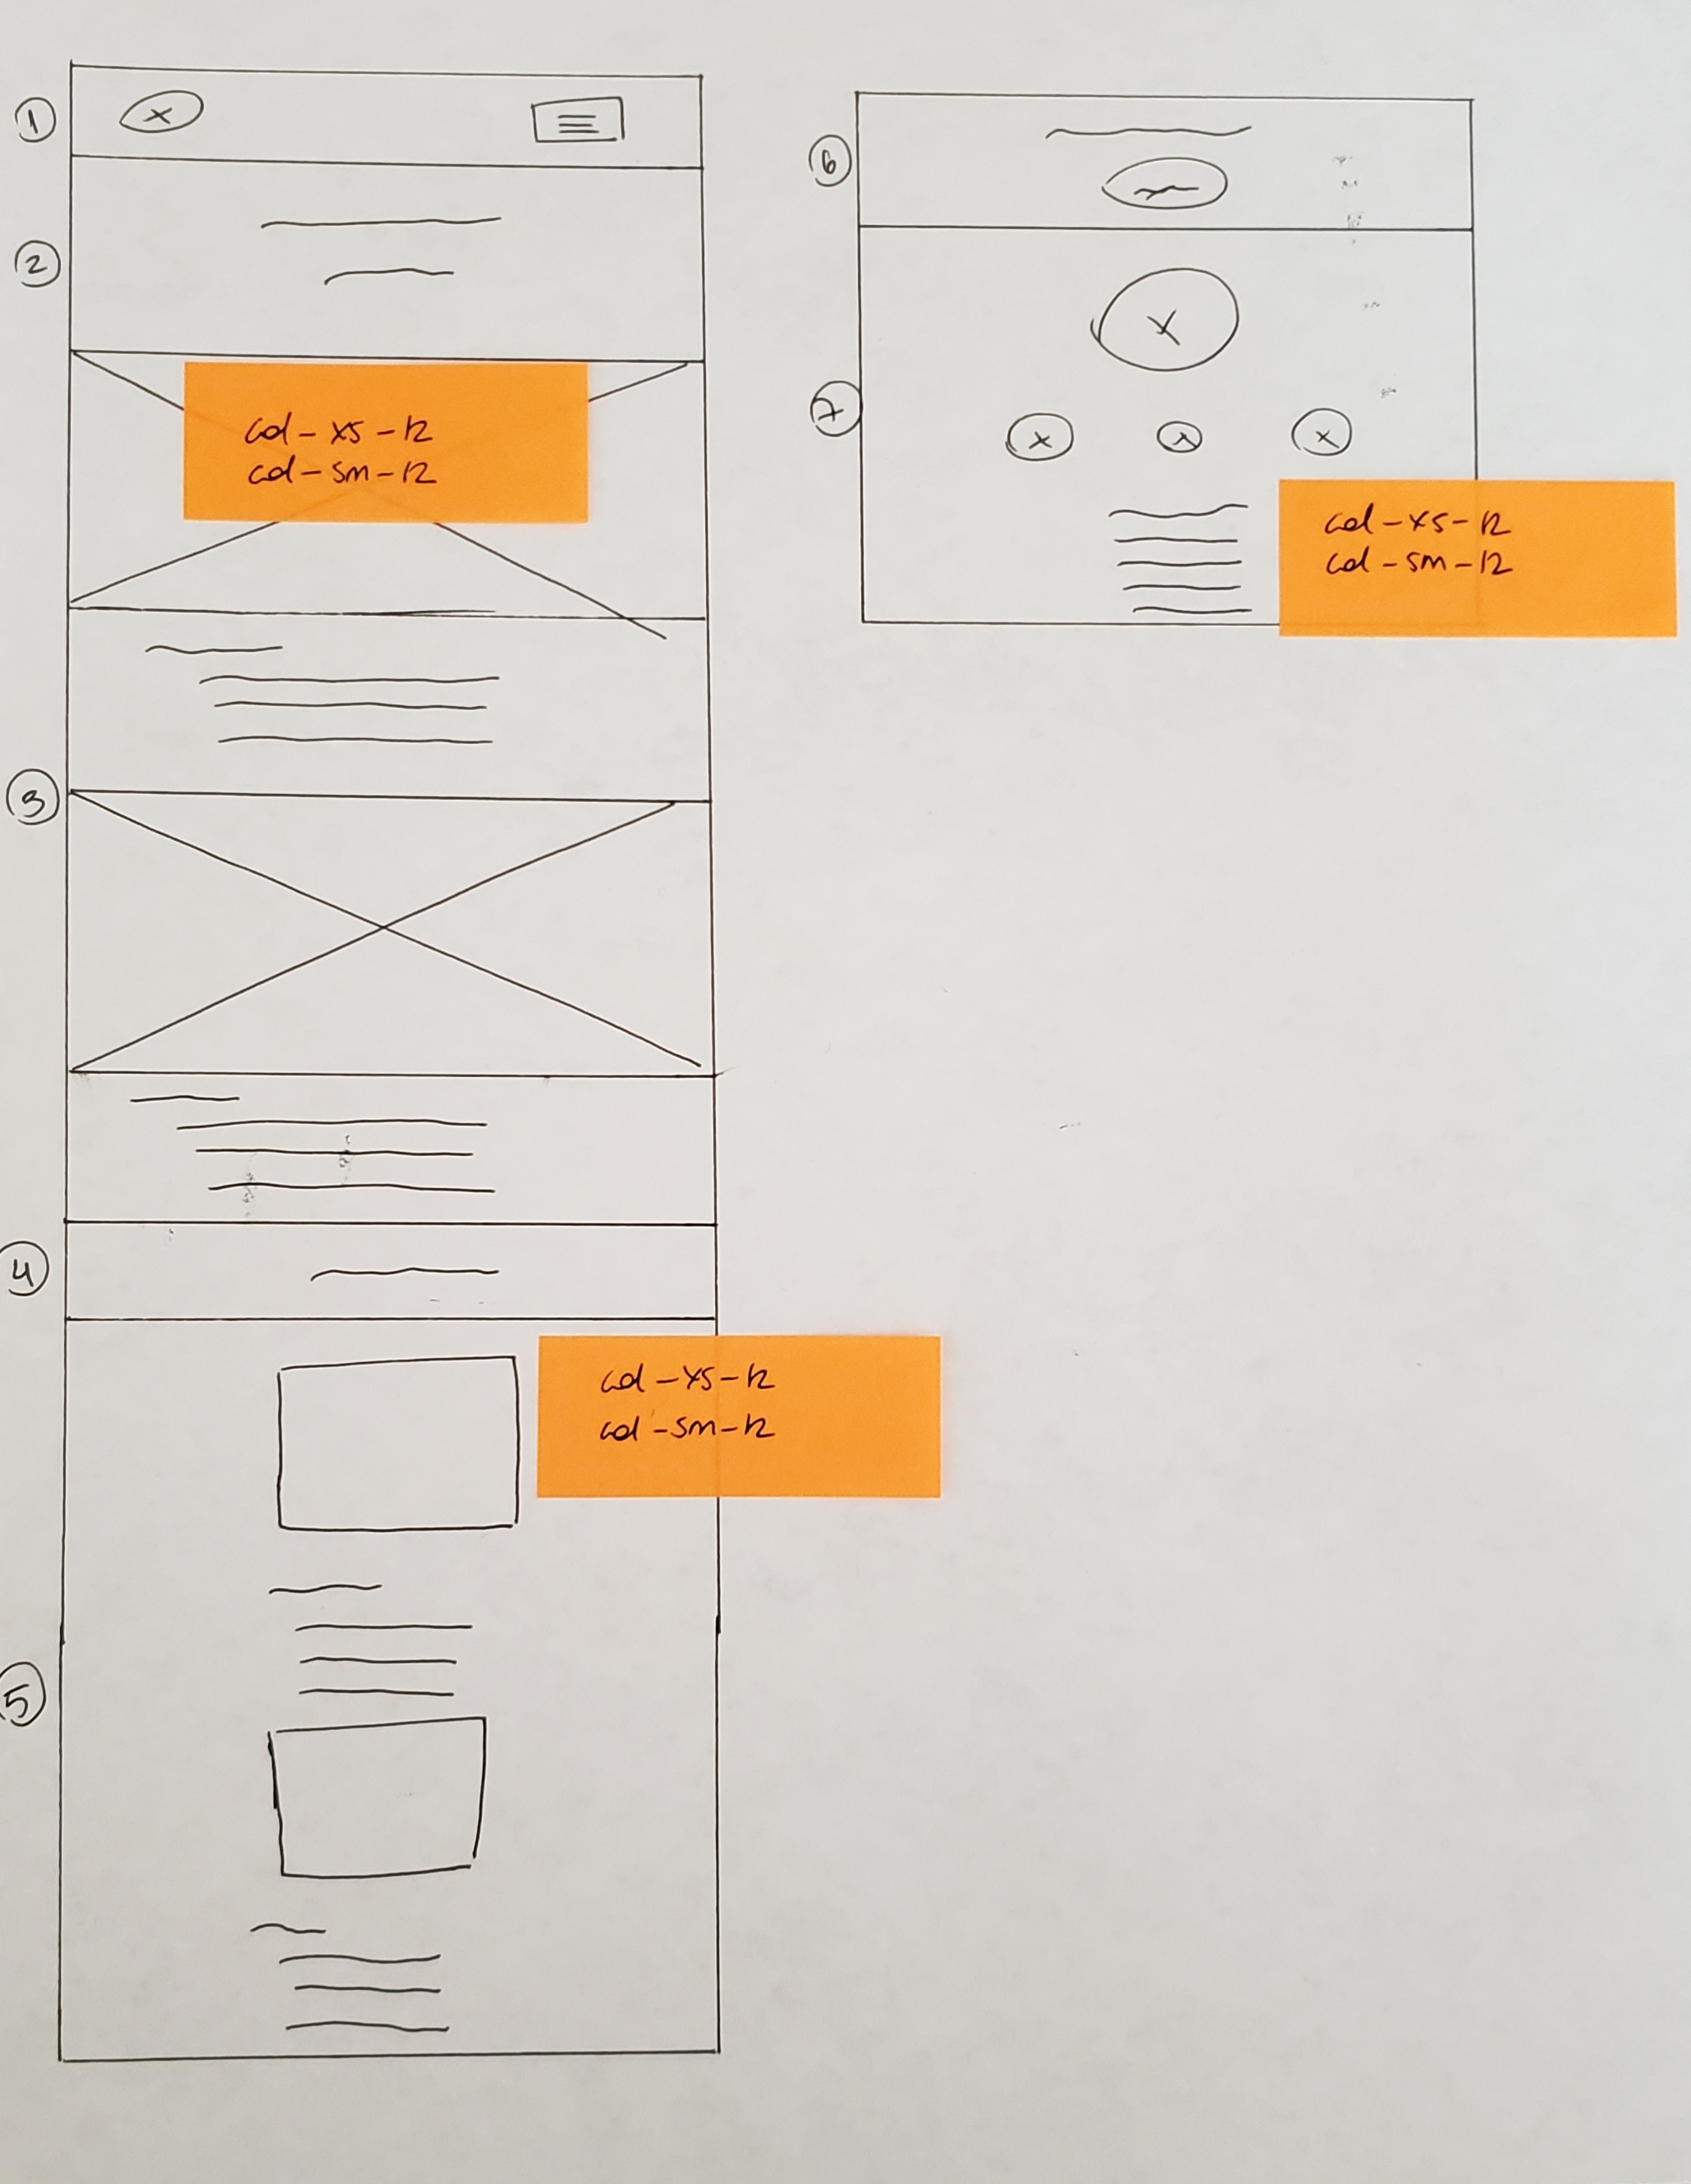 1
2
col-xs-12
col-sm-12
3
4
col-xs-12
col-sm-12
5
6
7
col-xs-12
col-sm-12